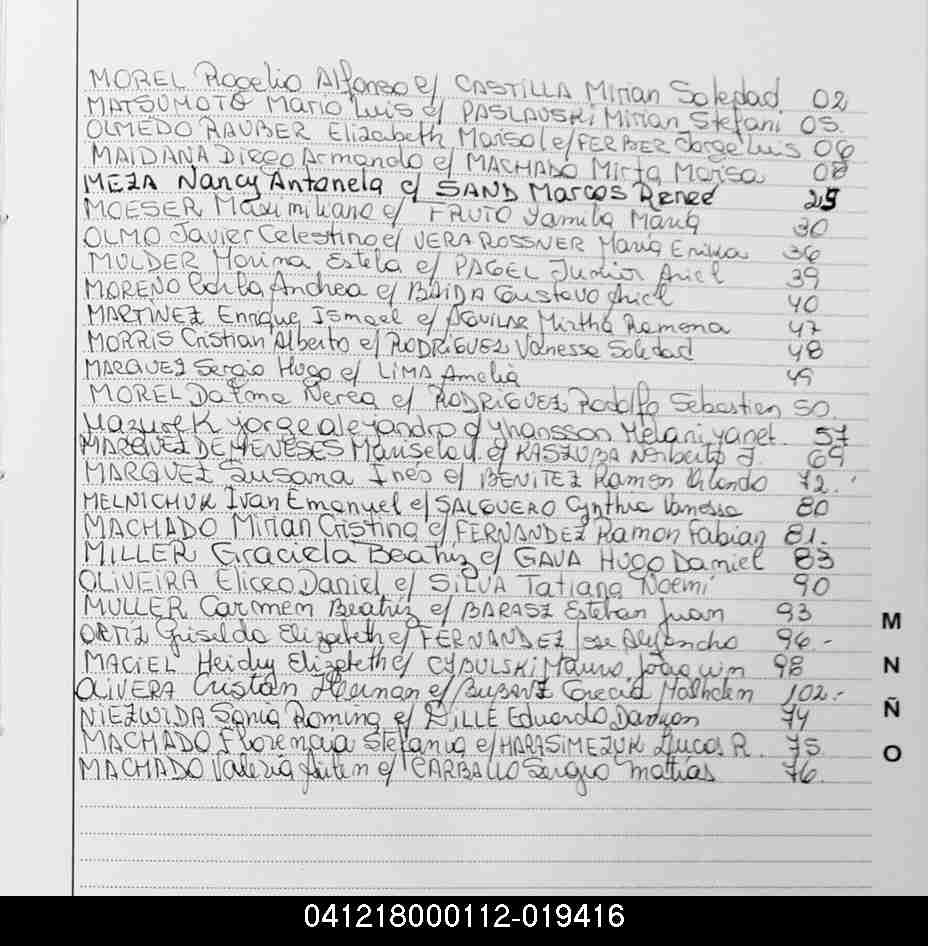 MOREL Rogelio Alfonso c/ CASTILLA Mirian Soledad 02
MATSUMOTO Mario Luis c/ PASLAUSKI Mirian Stefani 05.
OLMEDO RAUBER Elizabeth Marisol c/ FERBER Jorge Luis 06
MAIDANA Diego Armando c/ MACHADO Mirta Marisa 08
MEZA Nancy Antonela c/ SAND Marcos Renee 25
MOESER Maximiliano c/ FRUTO Yamila Maria 30
OLMO Javier Celestino c/ VERA ROSSNER Maria Erika 36
MULDER Marina Estela c/ PAGEL Junior Ariel 39
MORENO Carla Andrea c/ BAIDA Gustavo Ariel 40
MARTINEZ Enrique Ismael c/ AGUILAR Mirtha Ramona 47
MORRIS Cristian Alberto c/ RODRIGUEZ Vanessa Soledad 48
MARQUEZ Sergio Hugo c/ LIMA Amelia 49
MOREL Dafme Nerea c/ RODRIGUEZ Rodolfo Sebastien 50.
Mazurek jorge alejandro c/ yhansson Melani yanet. 57
MARQUEZ DE MENESES Marisel c/ KASZUBA Norberto J. 69
MARQUEZ Susana Inés c/ BENITEZ Ramon Orlando 72.
MELNICHUK Ivan Emanuel c/ SALGUERO Cynthia Vanessa 80
MACHADO Mirian Cristina c/ FERNANDEZ Ramon Fabian 81.
MILLER Graciela Beatriz c/ GAVA Hugo Daniel 83
OLIVEIRA Eliceo Daniel c/ SILVA Tatiana Noemi 90
MULLER Carmen Beatriz c/ BARASZ Esteban Juan 93
ORTIZ Griselda Elizabeth c/ FERNANDEZ Jose Alejandro 96.-
MACIEL Heidy Elizabeth c/ CYBULSKI Mauro Joaquin 98
OLIVERA Cristian Hernan c/ 102.-
NIEZWIDA Sonia Romina c/ HILLE Eduardo Damyan 74
MACHADO Florencia Stefania c/ HARASIMEZUK Lucas R. 75.
MACHADO Valeria c/ CARBALLO Sergio matias 76.
M
N
Ñ
O
041218000112-019416